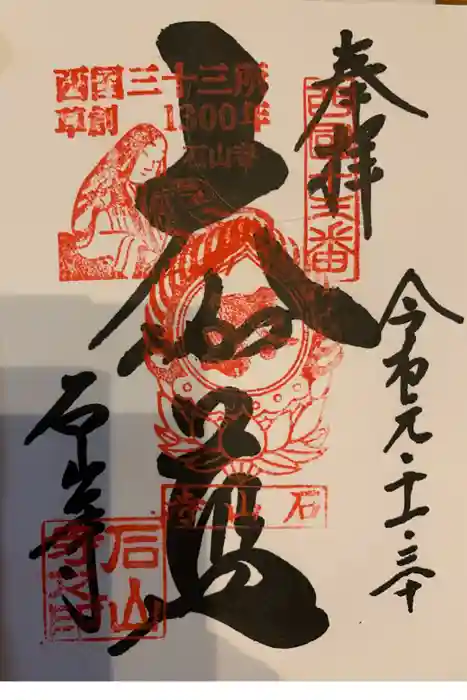 奉拝
西国十三番
令和元・十一・三十
西国三十三所
草創1300年
石山寺
大伽藍
石山寺
石山寺
石山